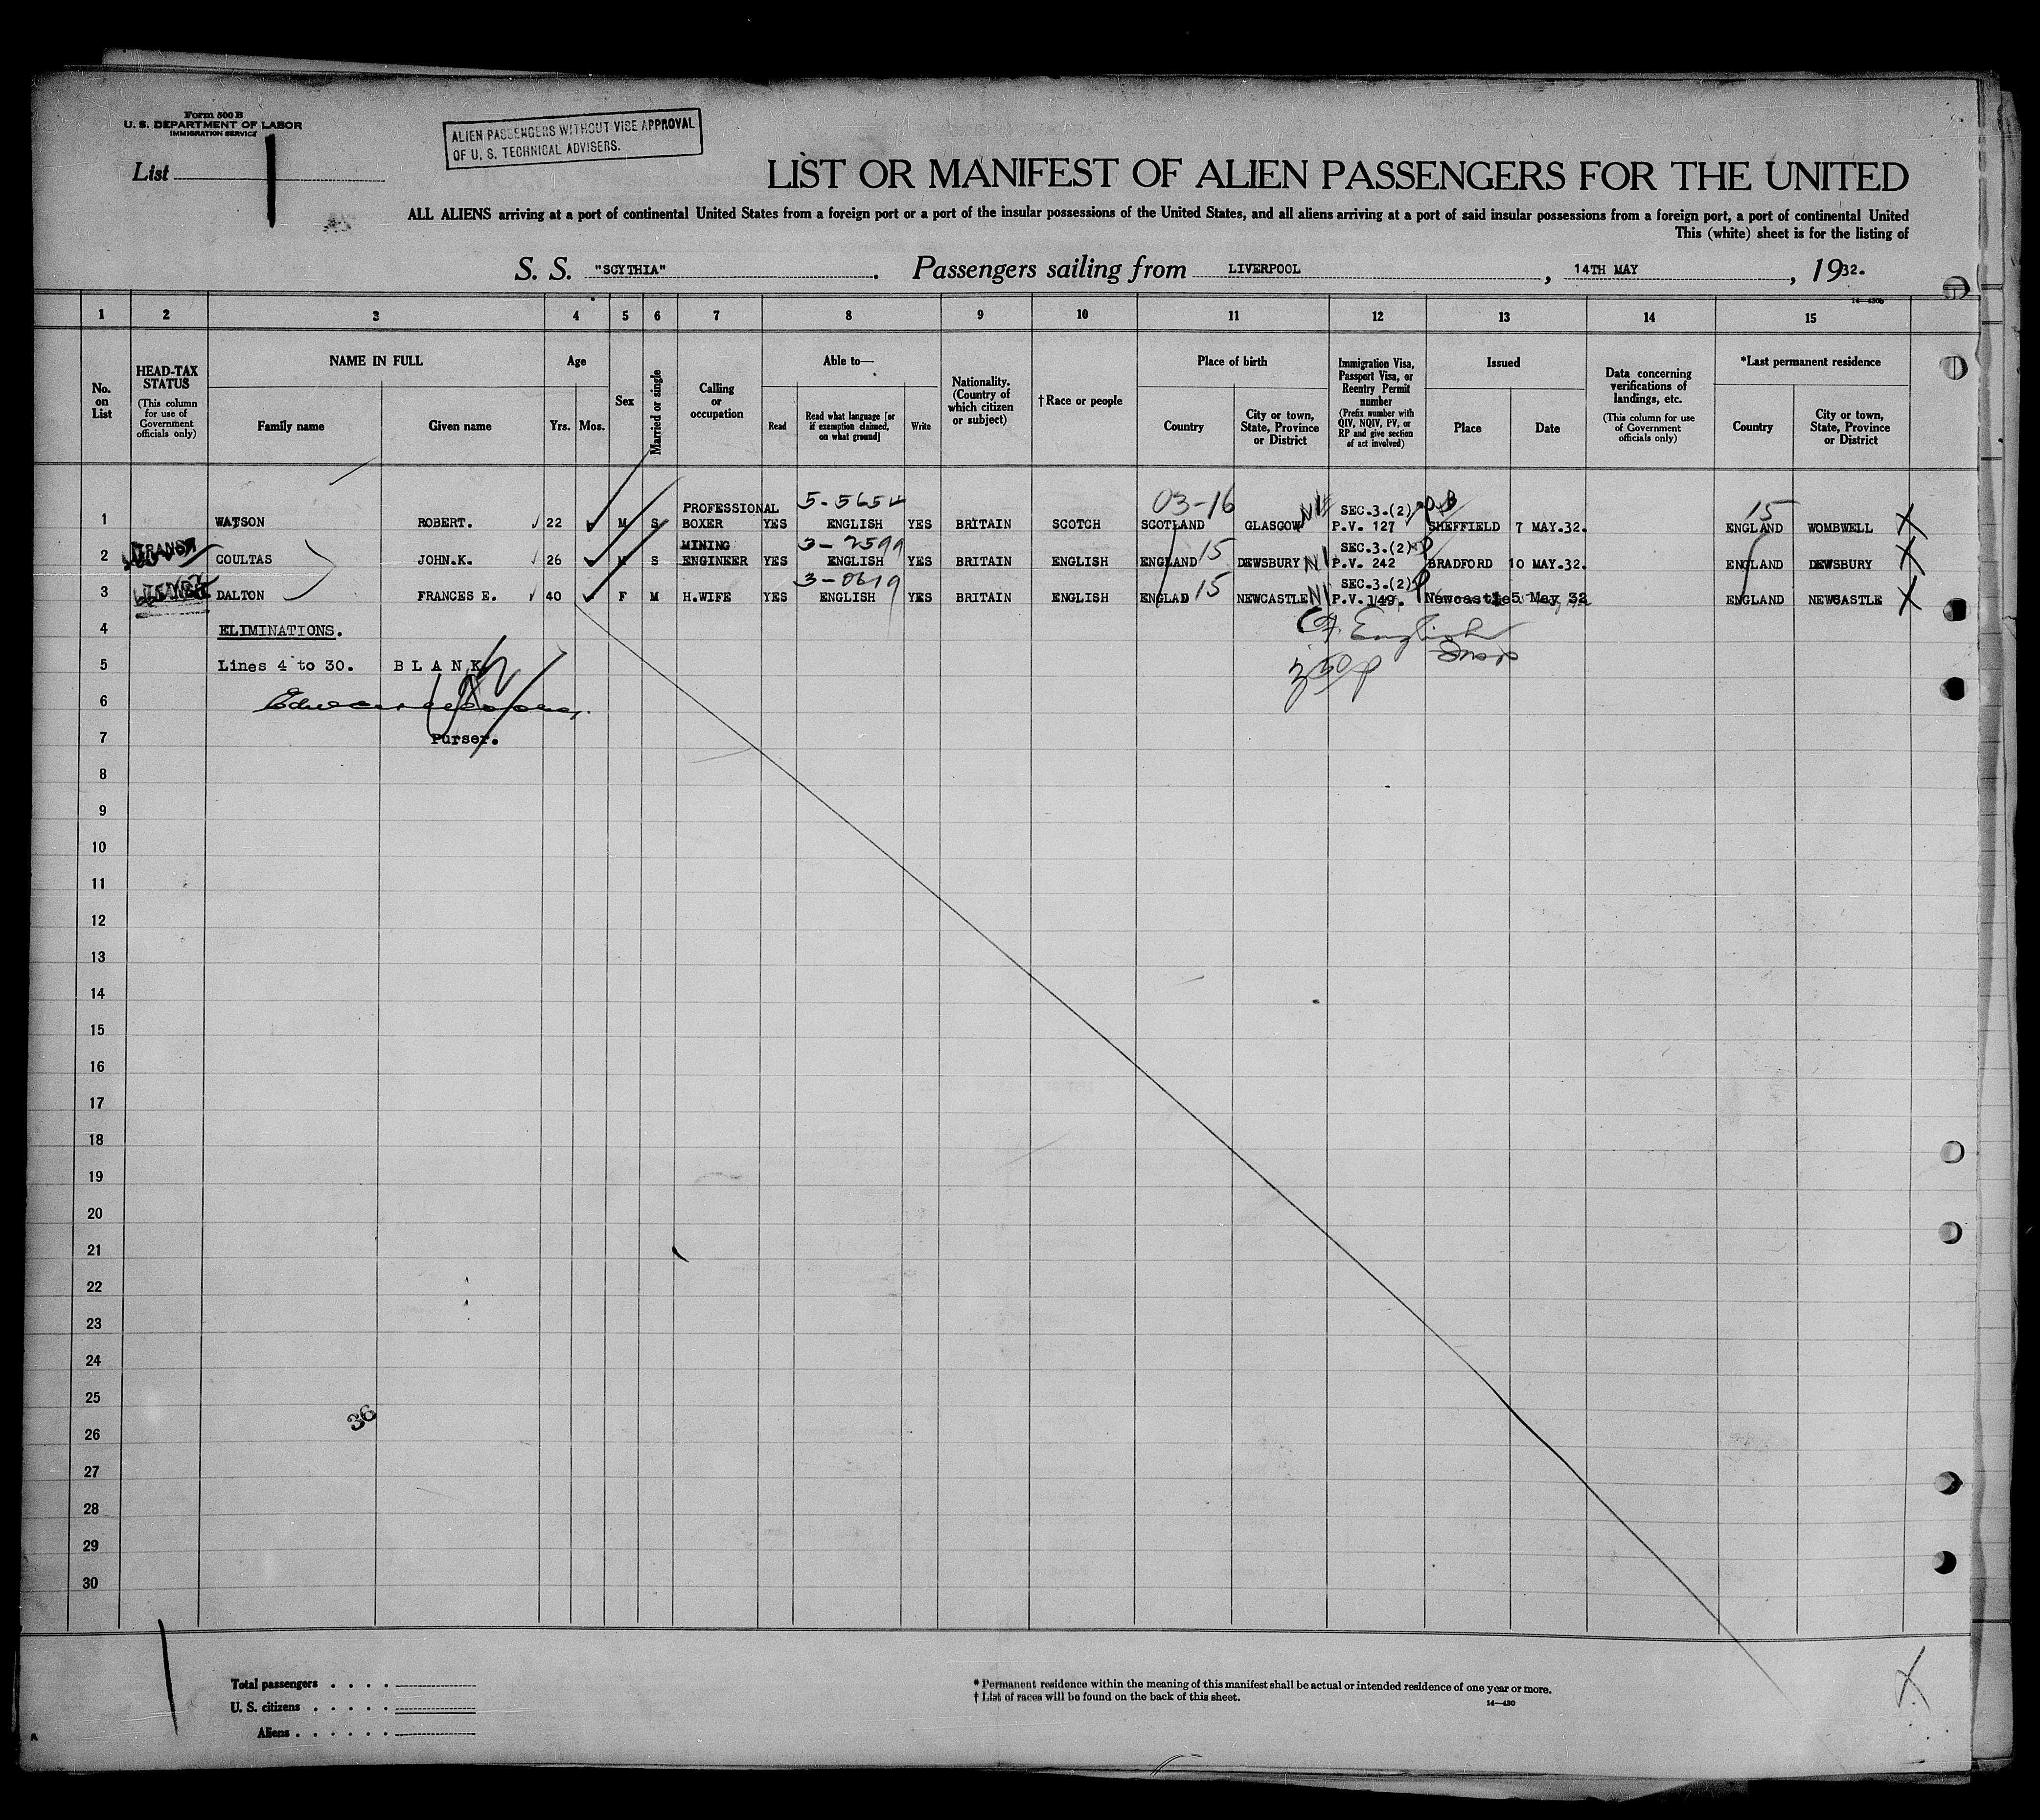 Form 500 B
U. S. DEPARTMENT OF LABOR
IMMIGRATION SERVICE
List 1
ALIEN PASSENGERS WITHOUT VISE APPROVAL
OF U. S. TECHNICAL ADVISERS.
LIST OR MANIFEST OF ALIEN PASSENGERS FOR THE UNITED
ALL ALIENS arriving at a port of continental United States from a foreign port or a port of the insular possessions of the United States, and all aliens arriving at a port of said insular possessions from a foreign port, a port of continental United
This (white) sheet is for the listing of
S. S. "SCYTHIA". Passengers sailing from LIVERPOOL, 14TH MAY, 1932.
1 2 3 4 5 6 7 8 9 10 11 12 13 14 15
No. on List
HEAD-TAX STATUS
(This column for use of Government officials only)
NAME IN FULL
Family name
Given name
Age
Yrs. Mos.
Sex
Married or single
Calling or occupation
Able to—
Read
Read what language [or if exemption claimed, on what ground]
Write
Nationality. (Country of which citizen or subject)
†Race or people
Place of birth
Country
City or town, State, Province or District
Immigration Visa, Passport Visa, or Reentry Permit number
(Prefix number with QIV, NQIV, PV, or RP and give section of act involved)
Issued
Place
Date
Data concerning verifications of landings, etc.
(This column for use of Government officials only)
*Last permanent residence
Country
City or town, State, Province or District
PROFESSIONAL 5-5654 03-16 SEC.3.(2) 15
1 WATSON ROBERT. 22 M S BOXER YES ENGLISH YES BRITAIN SCOTCH SCOTLAND GLASGOW P.V. 127 SHEFFIELD 7 MAY.32. ENGLAND WOMBWELL X
TRANSIT MINING 3-2599 SEC.3.(2)
2 COULTAS JOHN.K. 26 M S ENGINEER YES ENGLISH YES BRITAIN ENGLISH ENGLAND 15 DEWSBURY P.V. 242 BRADFORD 10 MAY.32. ENGLAND DEWSBURY X
3-0619 SEC.3.(2)
3 DALTON FRANCES E. 40 F M H.WIFE YES ENGLISH YES BRITAIN ENGLISH ENGLAD 15 NEWCASTLE P.V. 149. Newcastle 5 May 32 ENGLAND NEWCASTLE X
4 ELIMINATIONS.
5 Lines 4 to 30. B L A N K
6
7 Purser.
8
9
10
11
12
13
14
15
16
17
18
19
20
21
22
23
24
25
36
26
27
28
29
30
Total passengers . . . .
U. S. citizens . . . . .
Aliens . . . . . .
* Permanent residence within the meaning of this manifest shall be actual or intended residence of one year or more.
† List of races will be found on the back of this sheet.
14—430
X